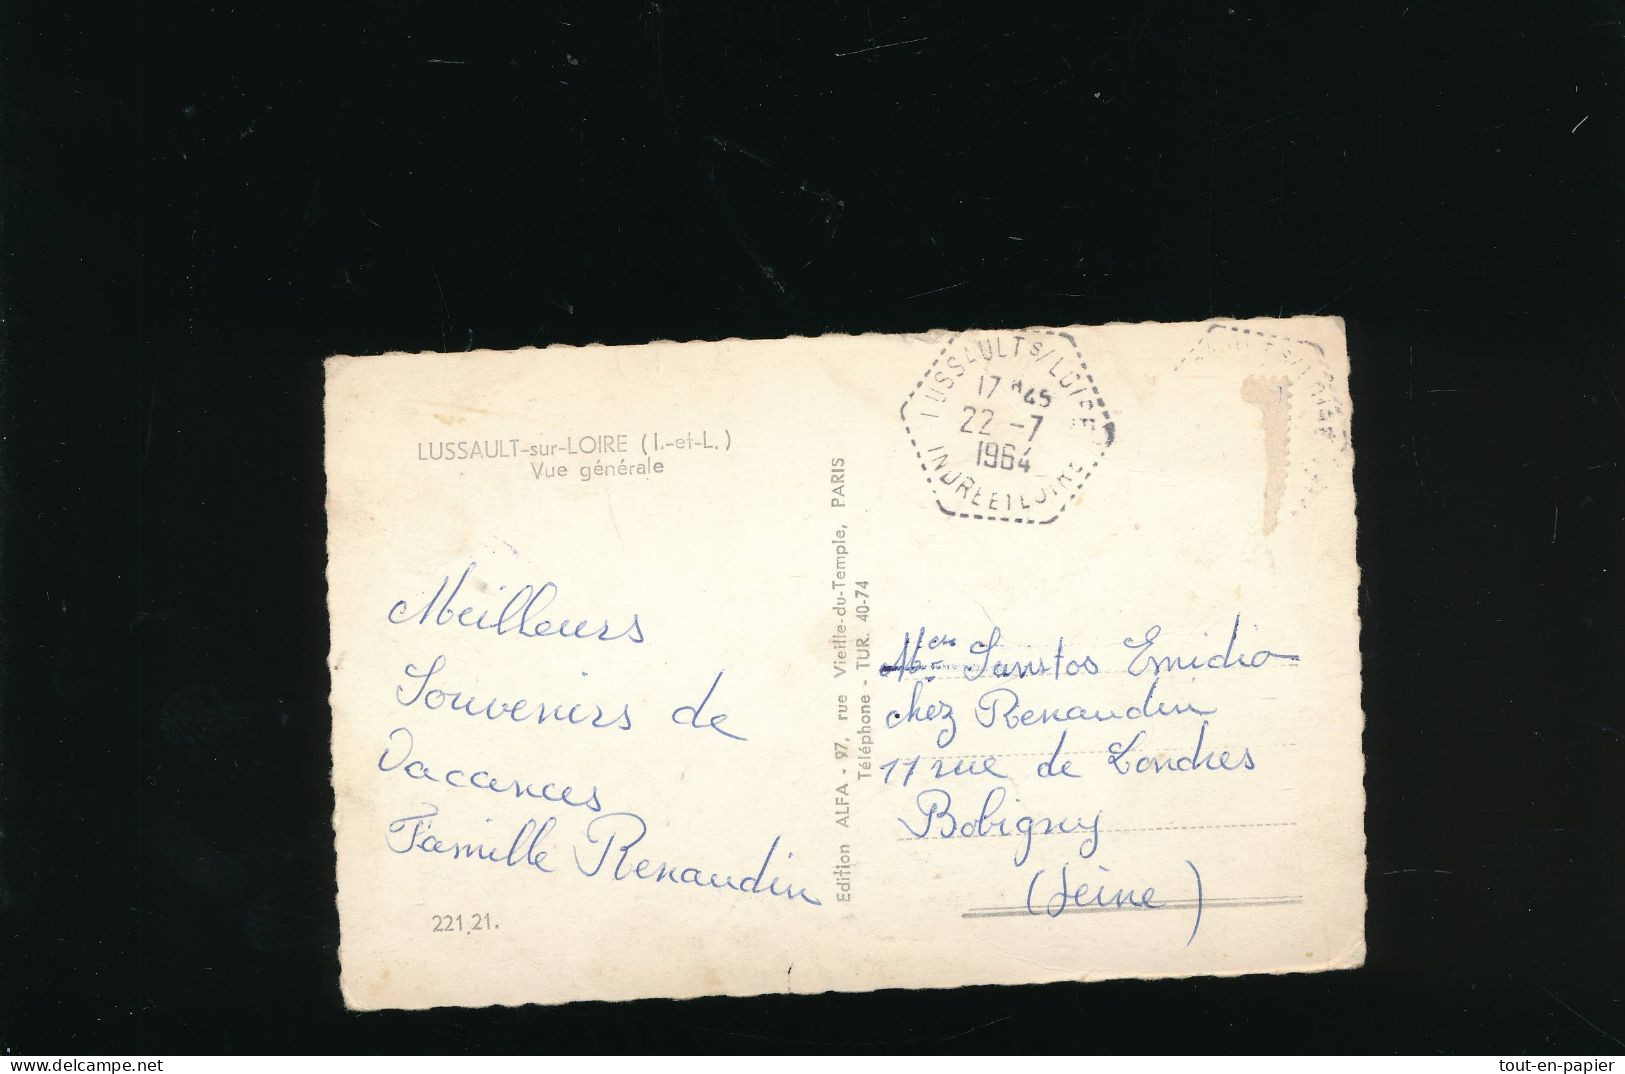 LUSSAULT-sur-LOIRE (I.-et-L.)
Vue générale
Meilleurs
Souvenirs de
Vacances
Famille Renaudin
221.21.
Edition ALFA - 97, rue Vieille-du-Temple, PARIS
Téléphone - TUR. 40-74
LUSSAULT S/LOIRE
17 H 45
22 -7
1964
INDRE ET LOIRE
Santos Emidio
chez Renaudin
11 rue de Londres
Bobigny
(Seine)
delcampe.net
tout-en-papier